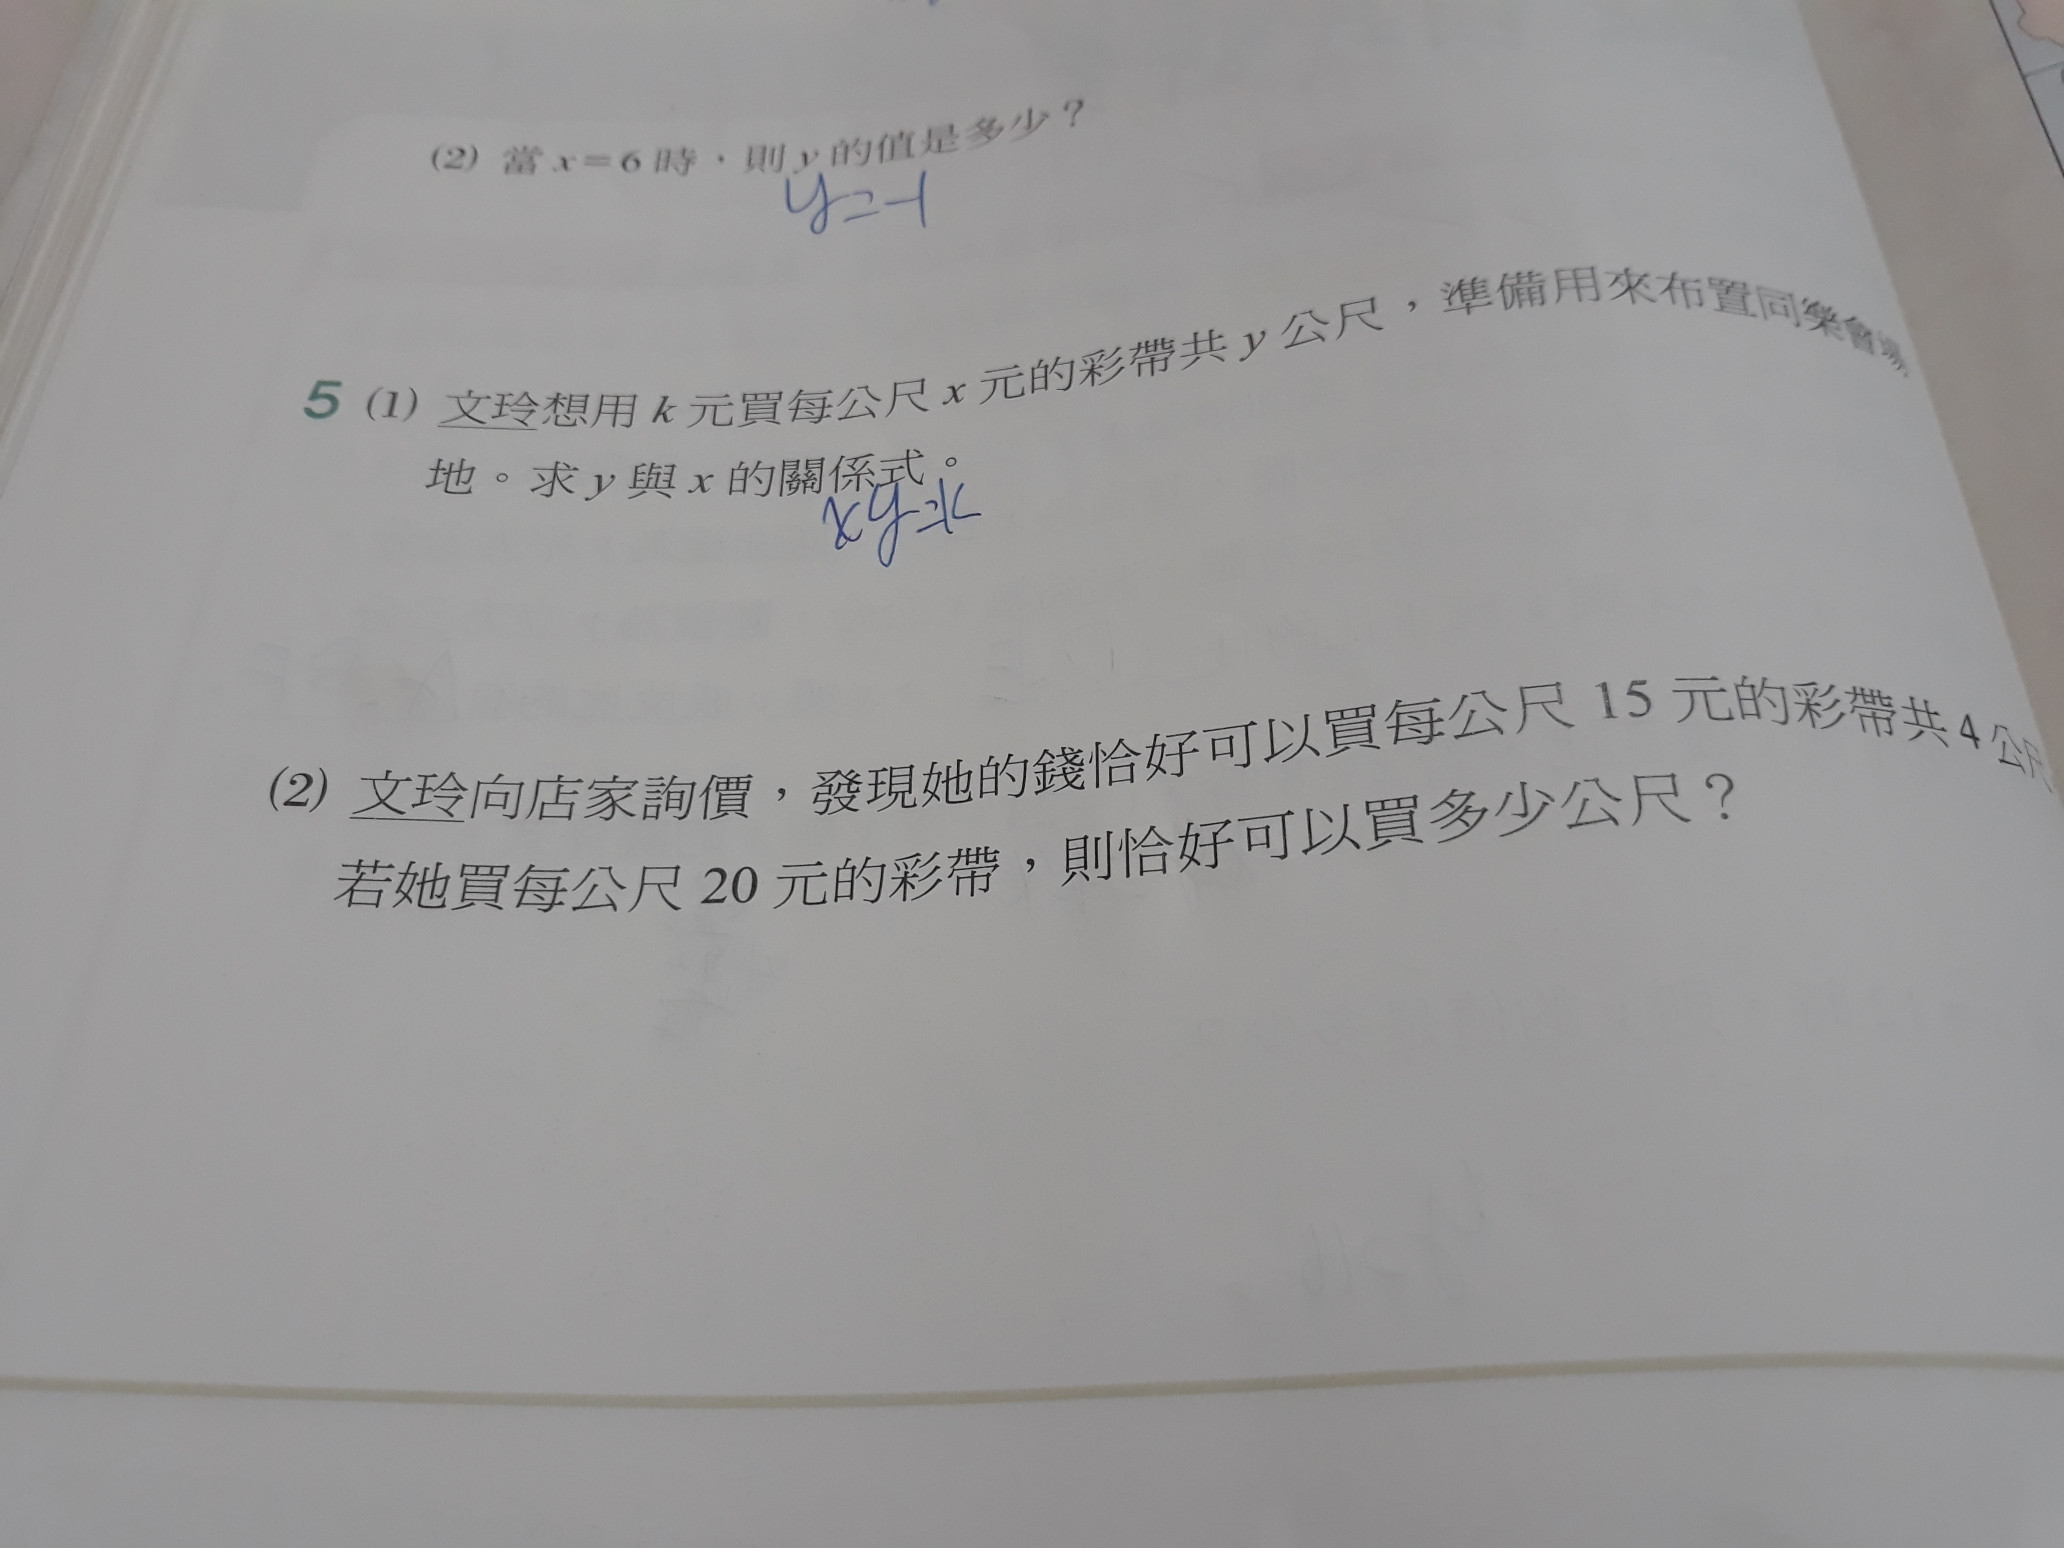 (2) 當 x=6 時，則 y 的值是多少？
y=-1
5 (1) 文玲想用 k 元買每公尺 x 元的彩帶共 y 公尺，準備用來布置同樂會場
地。求 y 與 x 的關係式。
xy=k
(2) 文玲向店家詢價，發現她的錢恰好可以買每公尺 15 元的彩帶共 4 公尺
若她買每公尺 20 元的彩帶，則恰好可以買多少公尺？